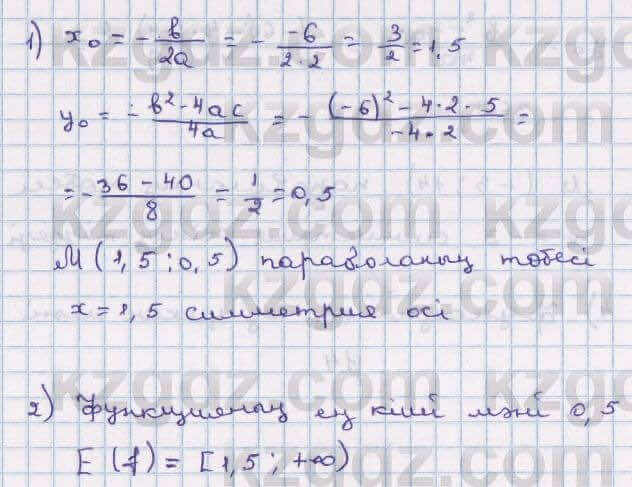 1) x₀ = - b/2a = - -6/2·2 = 3/2 = 1,5
y₀ = - b² - 4ac/4a = - (-6)² - 4·2·5/-4·2 =
= - 36 - 40/8 = 1/2 = 0,5
M (1,5 ; 0,5) параболаның төбесі
x = 1,5 симметрия осі
2) Функцияның ең кіші мәні 0,5
E (f) = [1,5 ; +∞)
kzgdz.com